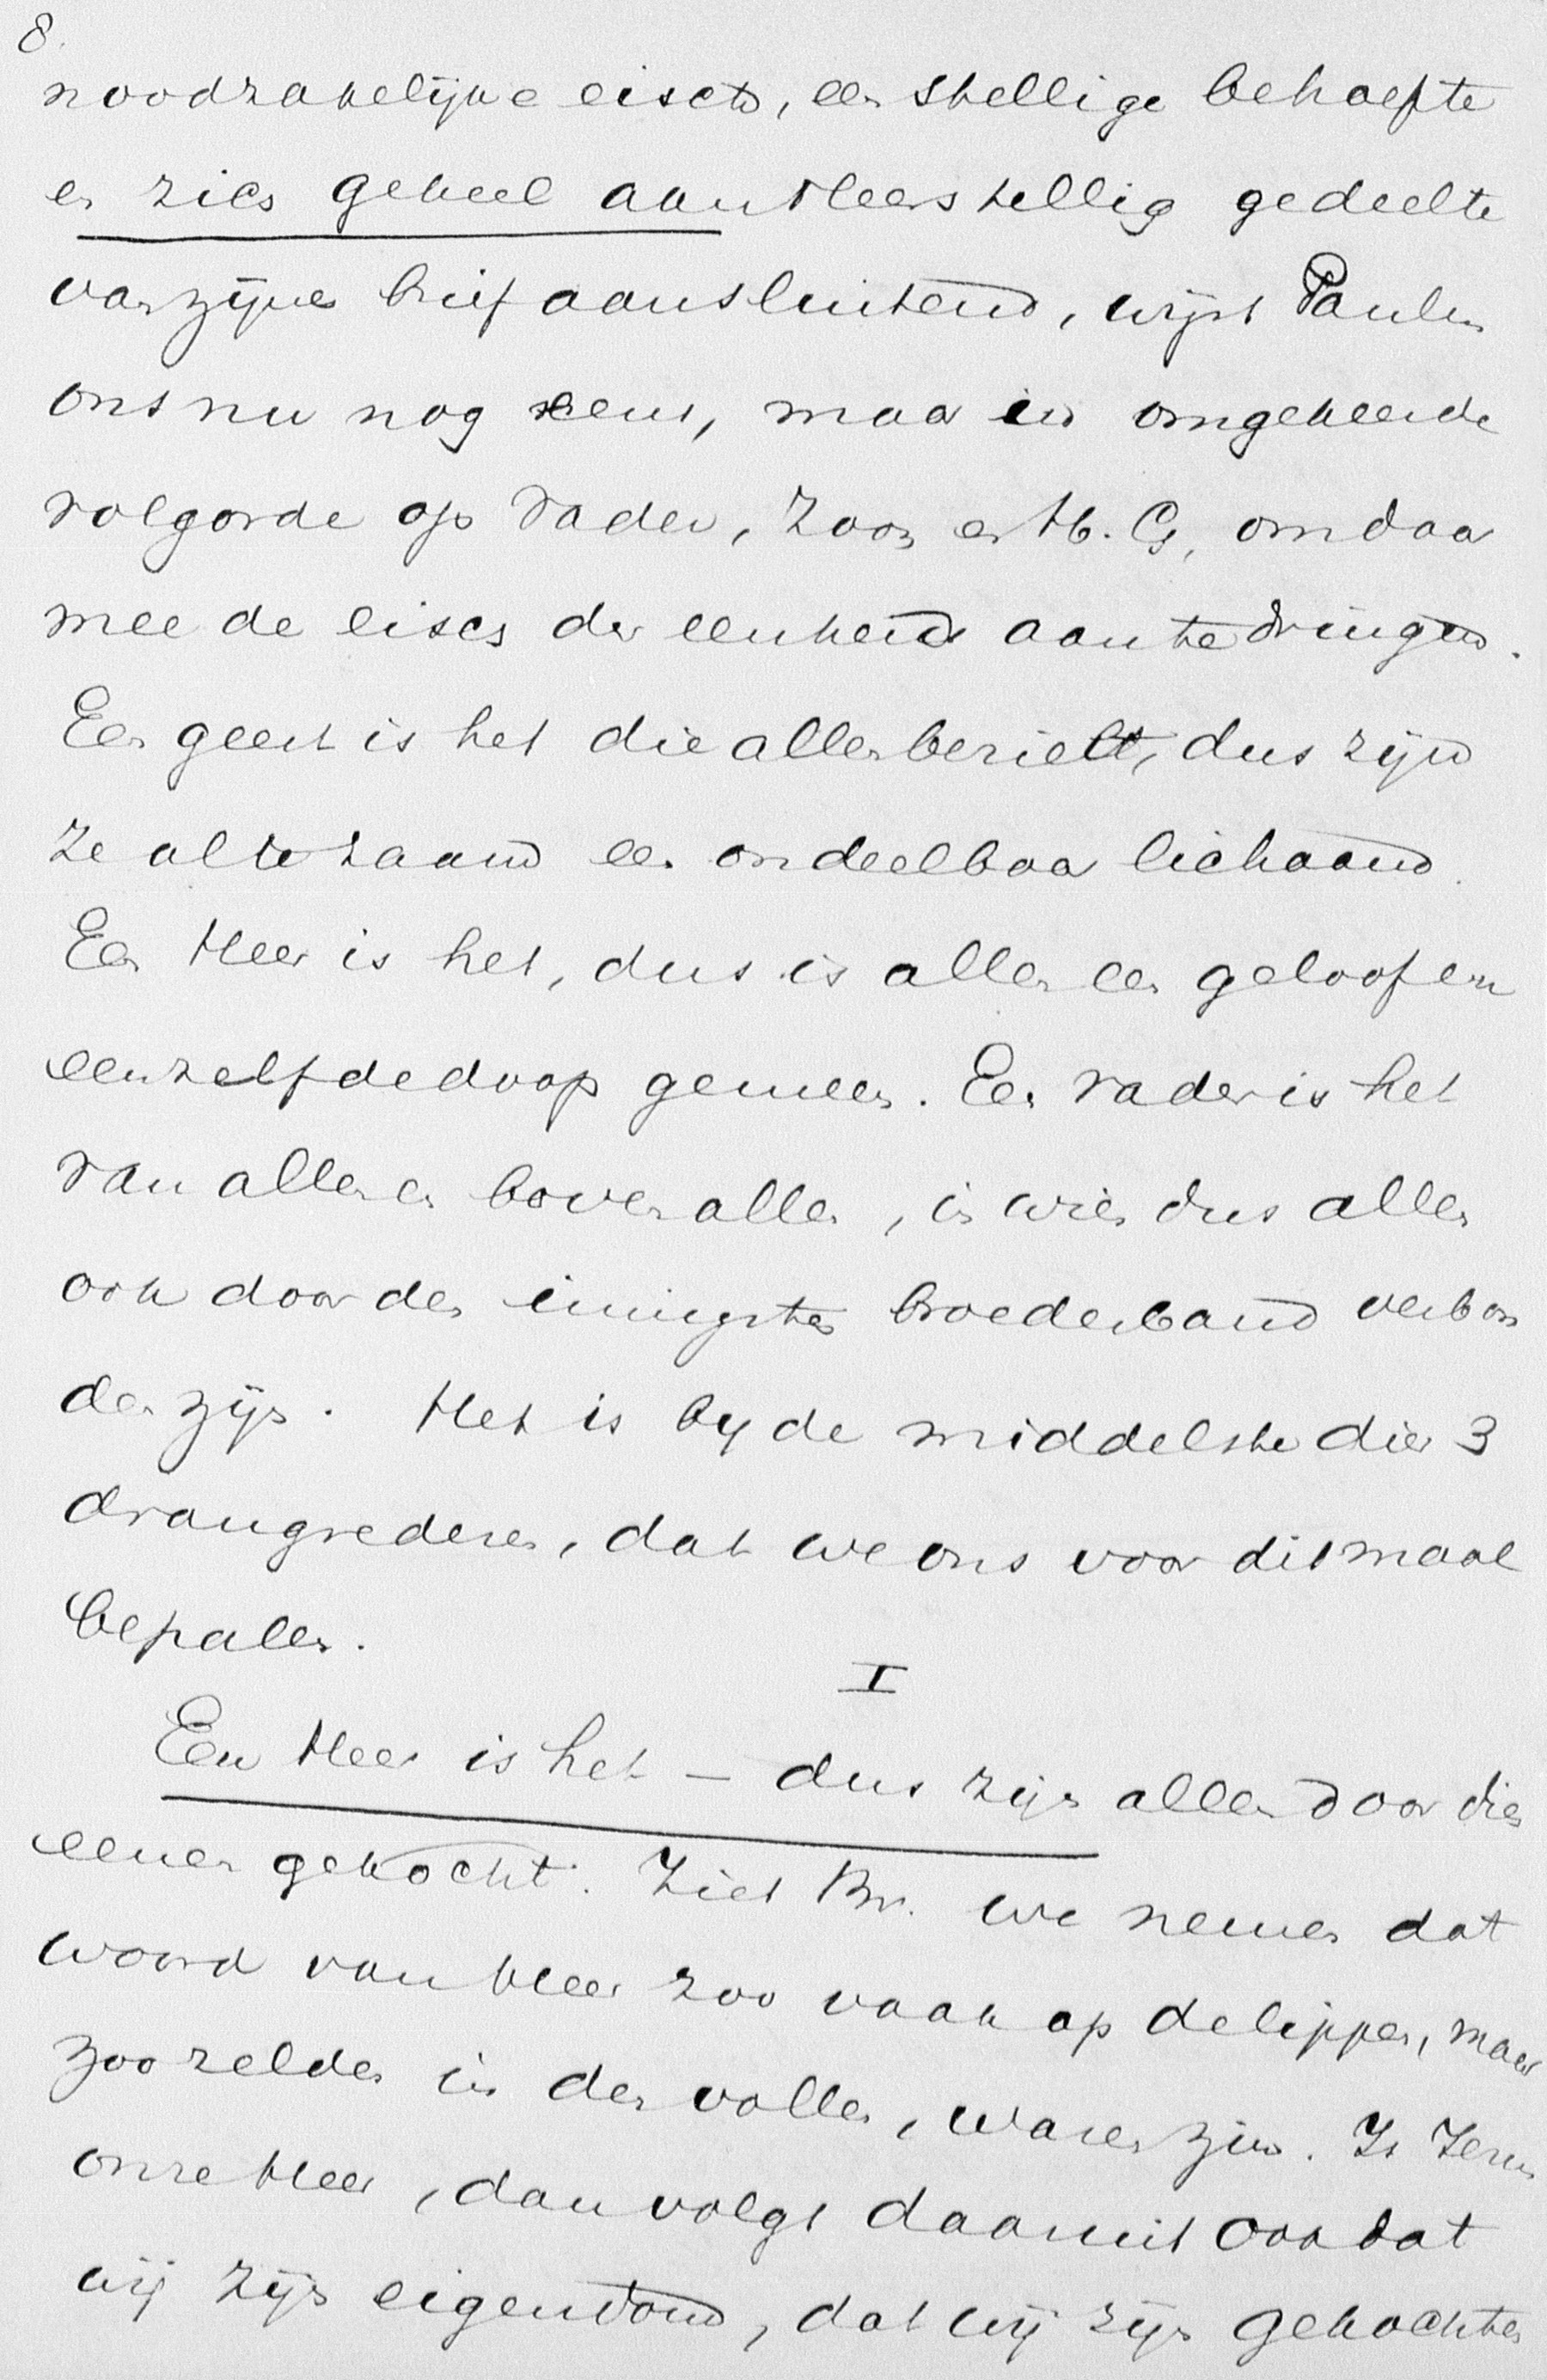 8.
noodzakelijke eisch, een stellige behoefte
en zich geheel aan 't leerstellig gedeelte
van zijne brief aansluitend, wijst Paulus
ons nu nog eens, maar in omgekeerde
volgorde op Vader, Zoon en H. G, om daar
mee de eisch der eenheid aan te dringen.
Een geest is het die allen bezielt, dus zijn
ze altezaam een ondeelbaar lichaam.
Een Heer is het, dus is allen een geloof en
eenzelfde doop gemeen. Een Vader is het
van allen en boven allen, in wien dus allen
ook door den innigsten broederband verbon
den zijn. Het is bij de middelste dier 3
drangredenen, dat we ons voor ditmaal
bepalen.
I
Een Heer is het – dus zijn allen door dien
eenen gekocht. Ziet Br. we nemen dat
woord van Heer zoo vaak op de lippen, maar
zoo zelden in den vollen, waren zin. Is Jezus
onze Heer, dan volgt daaruit ook dat
wij zijn eigendom, dat wij zijn gekochten